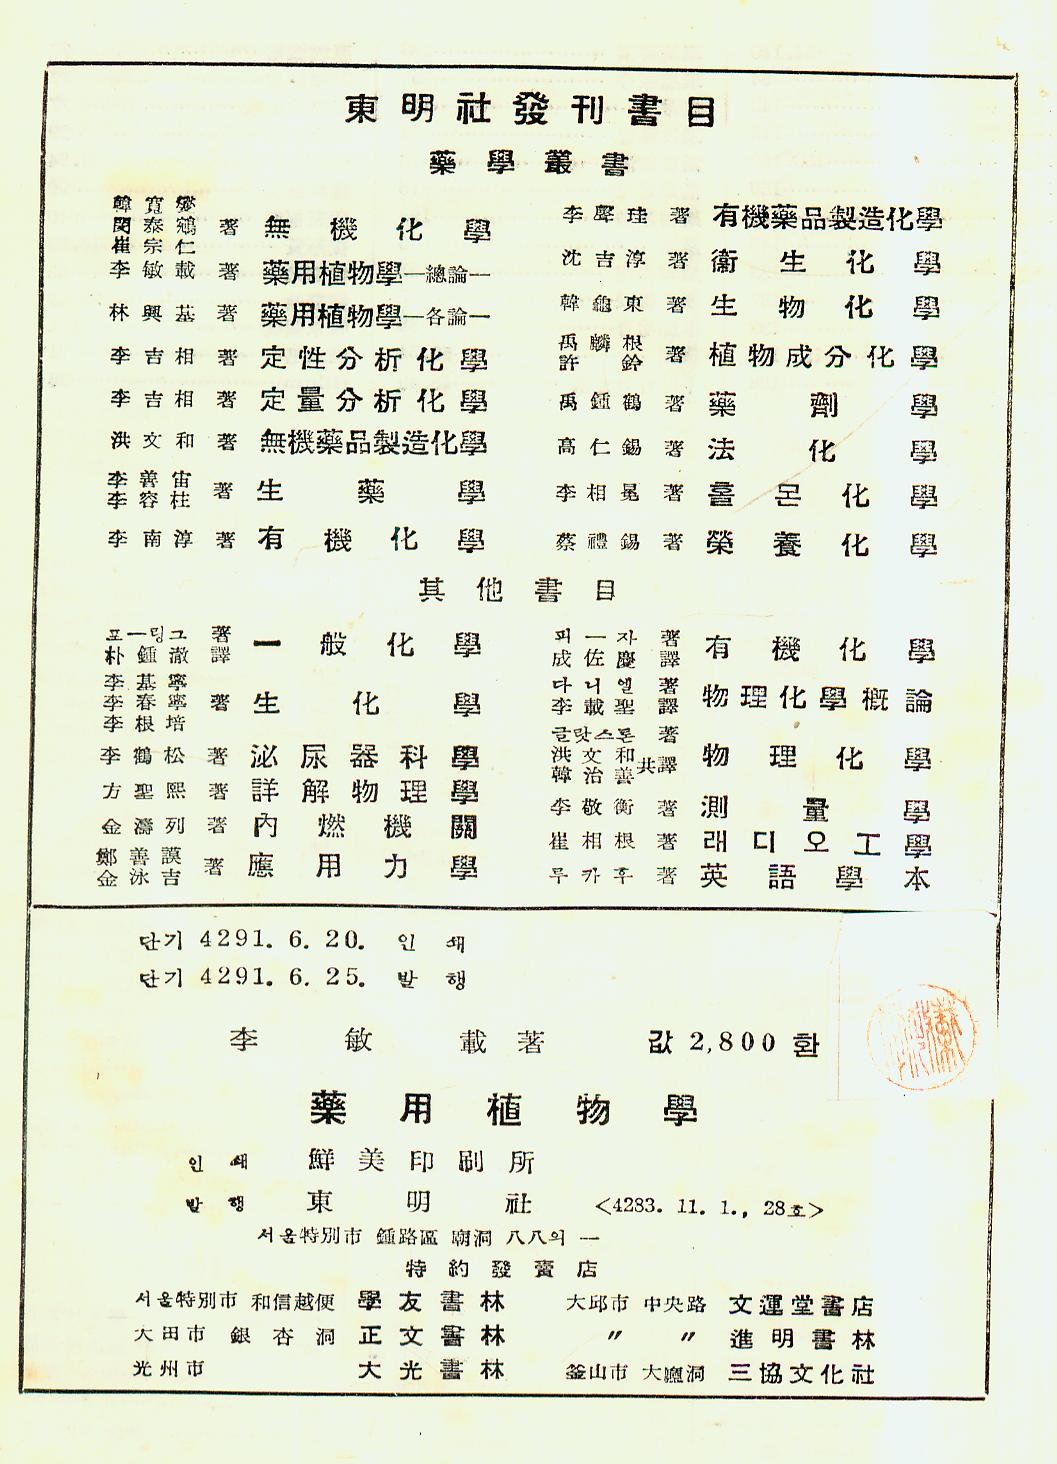 東明社發刊書目
藥學叢書
韓寬燮
閔泰鵷 著 無機化學
崔宗仁
李敏載 著 藥用植物學—總論—
林興基 著 藥用植物學—各論—
李吉相 著 定性分析化學
李吉相 著 定量分析化學
洪文和 著 無機藥品製造化學
李善宙
李容柱 著 生藥學
李南淳 著 有機化學
李聲珪 著 有機藥品製造化學
沈吉淳 著 衞生化學
韓龜東 著 生物化學
禹麟根
許鈴 著 植物成分化學
禹鍾鶴 著 藥劑學
高仁錫 著 法化學
李相晃 著 홀몬化學
蔡禮錫 著 榮養化學
其他書目
포—링그 著
朴鍾澈 譯 一般化學
李基寧
李春寧 著 生化學
李根培
李鶴松 著 泌尿器科學
方聖熙 著 詳解物理學
金濤列 著 內燃機關
鄭善謨
金泳吉 著 應用力學
피—자 著
成佐慶 譯 有機化學
다니엘 著
李載聖 譯 物理化學槪論
글랏스톤 著
洪文和
韓治善 共譯 物理化學
李敬衡 著 測量學
崔相根 著 래디오工學
루카후 著 英語學本
단기 4291. 6. 20. 인쇄
단기 4291. 6. 25. 발행
李敏載著 값 2,800 환
藥用植物學
인쇄 鮮美印刷所
발행 東明社 <4283. 11. 1., 28호>
서울特別市 鍾路區 廟洞 八八의 一
特約發賣店
서울特別市 和信越便 學友書林
大田市 銀杏洞 正文書林
光州市 大光書林
大邱市 中央路 文運堂書店
〃 〃 進明書林
釜山市 大廳洞 三協文化社